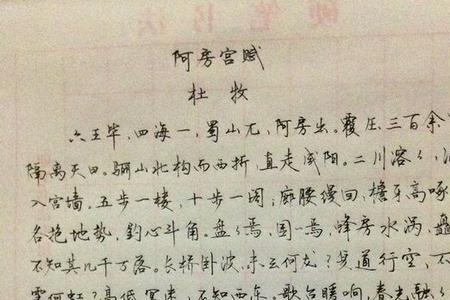 阿房宫赋
杜牧
六王毕,四海一,蜀山兀,阿房出。覆压三百余
隔离天日。骊山北构而西折,直走咸阳。二川溶々,
入宫墙。五步一楼,十步一阁;廊腰缦回,檐牙高啄
各抱地势,钩心斗角。盘々焉,囷々焉,蜂房水涡,矗
不知其几千万落。长桥卧波,未云何龙?复道行空,不
霁何虹?高低冥迷,不知西东。歌台暖响,春光融々